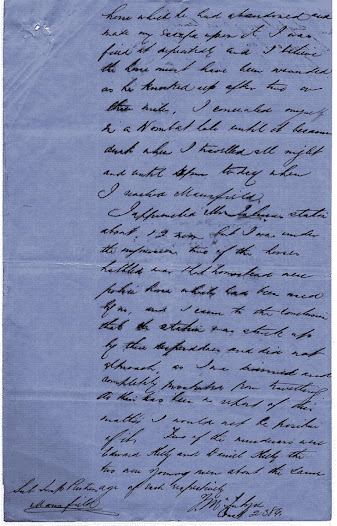 horse which he had abandoned and
made my escape upon it. I was
fired at repeatedly and I believe
the horse must have been wounded
as he knocked up after two or
three miles. I concealed myself
in a Wombat hole until it became
dark when I travelled all night
and until 4pm today when
I reached Mansfield.
I approached Mr station
about 12 noon but I was under
the impression two of the horses
near that homestead were
police horses which had been used
by us, and I came to the conclusion
that the station was stuck up
by these desperadoes and did not
approach, as I was and
completely prostrated from travelling
As this has been a report of this
matter I would not be
of it. Two of the murderers were
Edward Kelly and Daniel Kelly the
two were young men about the same
age of each respectively
Sub Insp Pewtress
Mansfield